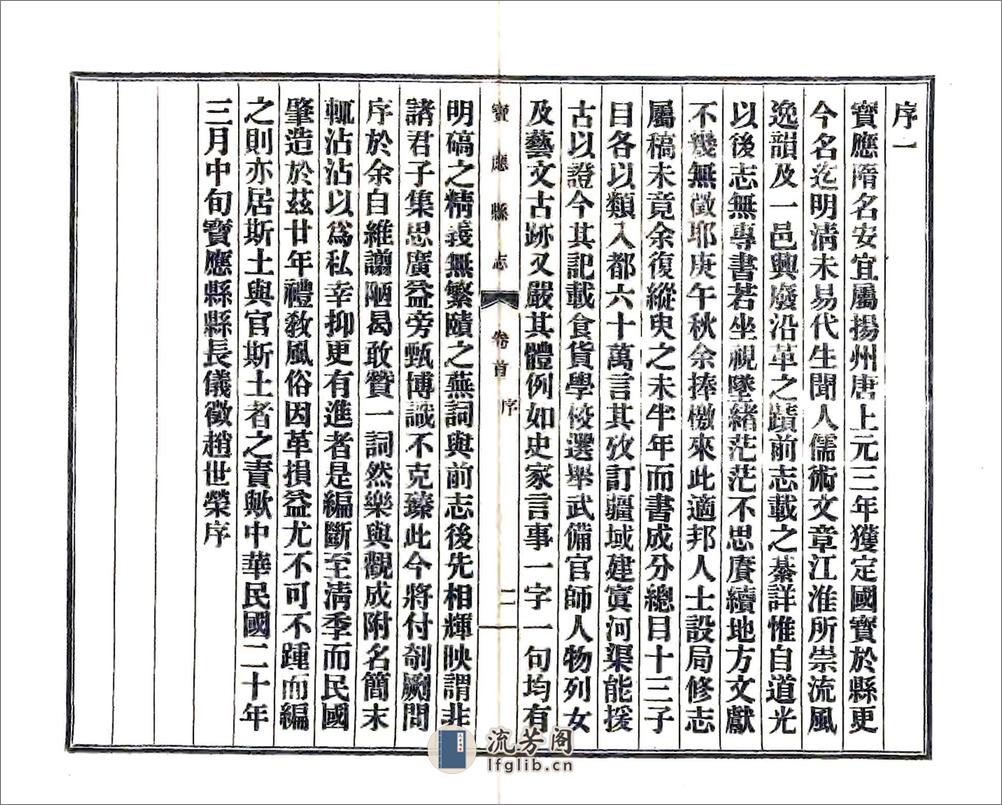 序一
寶應隋名安宜屬揚州唐上元三年獲定國寶於縣更
今名迄明清未易代生聞人儒術文章江淮所崇流風
逸韻及一邑興廢沿革之蹟前志載之綦詳惟自道光
以後志無專書若坐視墜緒茫茫不思賡續地方文獻
不幾無徵耶庚午秋余捧檄來此適邦人士設局修志
屬稿未竟余復縱臾之未半年而書成分總目十三子
目各以類入都六十萬言其攷訂疆域建寘河渠能援
古以證今其記載食貨學校選舉武備官師人物列女
及藝文古跡又嚴其體例如史家言事一字一句均有
寶應縣志 卷首 序 二
明碻之精義無繁賾之蕪詞與前志後先相輝映謂非
諸君子集思廣益旁甄博識不克臻此今將付剞劂問
序於余自維譾陋曷敢贊一詞然樂與觀成附名簡末
輒沾沾以爲私幸抑更有進者是編斷至清季而民國
肇造於茲廿年禮教風俗因革損益尤不可不踵而編
之則亦居斯土與官斯土者之責歟中華民國二十年
三月中旬寶應縣縣長儀徵趙世榮序
流芳阁
lfglib.cn